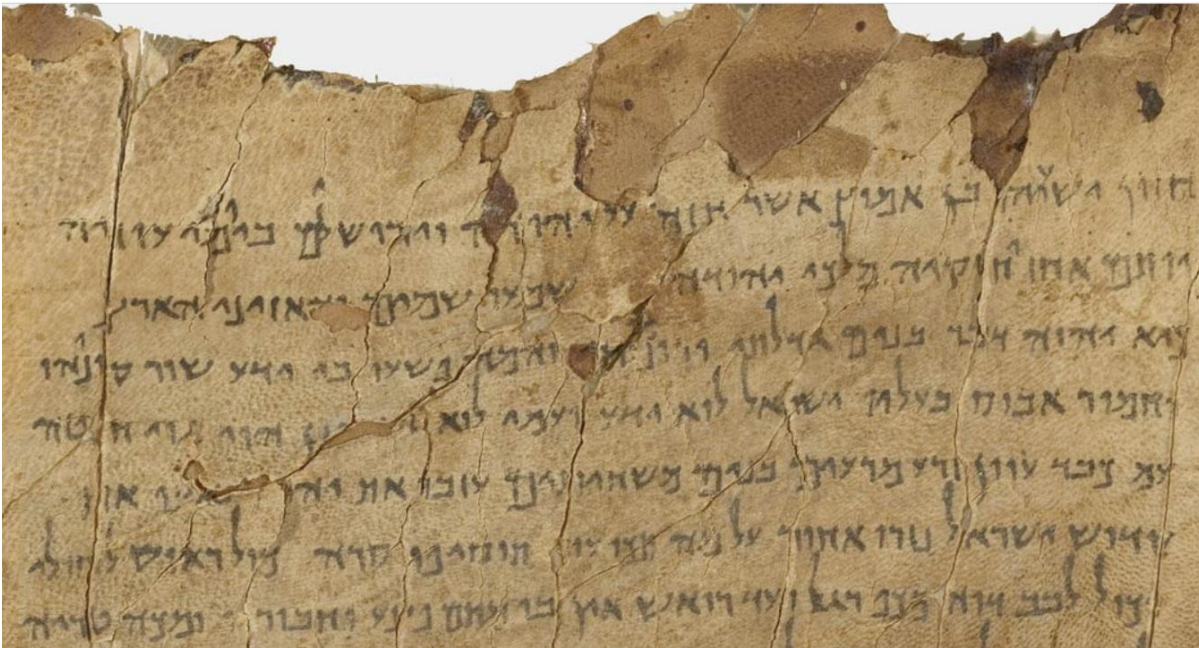 חזון ישעיהו בן אמוץ אשר חזה על יהודה וירושלם ביומי עוזיה
יותם אחז יחזקיה מלכי יהודה שמעו שמים והאזינו הארץ
כיא יהוה דבר בנים גדלתי ורוממתי והמה פשעו בי ידע שור קונהו
וחמור אבוס בעליו ישראל לוא ידע ועמי לוא הוי גוי חוטה
עם כבד עוון זרע מרעים בנים משחיתים עזבו את יהוה
קדוש ישראל נזרו אחור על מה תכו עוד תוסיפו סרה כול ראוש לחולי
וכול לבב דוי מכף רגל ועד רואש אין בו מתם פצע וחבורה ומכה טריה